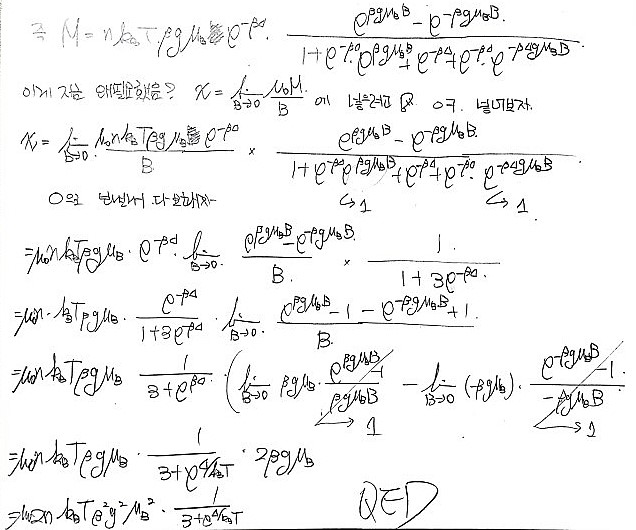 즉 M = nk_BT βgμ_B e^{-βΔ} · (e^{βgμ_BB} - e^{-βgμ_BB}) / (1 + e^{-βΔ} e^{βgμ_BB} + e^{-βΔ} + e^{-βΔ} · e^{-βgμ_BB})
이게 지금 왜필요했음? χ = lim_{B→0} μ₀M / B 에 넣어보자
χ = lim_{B→0} μ₀nk_BTβgμ_B e^{-βΔ} / B × (e^{βgμ_BB} - e^{-βgμ_BB}) / (1 + e^{-βΔ} e^{βgμ_BB} + e^{-βΔ} + e^{-βΔ} · e^{-βgμ_BB})
→ 1 → 1
0으로
= μ₀nk_BTβgμ_B · e^{-βΔ} lim_{B→0} (e^{βgμ_BB} - e^{-βgμ_BB}) / B × 1 / (1 + 3e^{-βΔ})
= μ₀n · k_BTβgμ_B · e^{-βΔ} / (1 + 3e^{-βΔ}) · lim_{B→0} (e^{βgμ_BB} - 1 - e^{-βgμ_BB} + 1) / B
= μ₀nk_BTβgμ_B 1 / (3 + e^{βΔ}) · ( lim_{B→0} βgμ_B · (e^{βgμ_BB} - 1) / βgμ_BB - lim_{B→0} (-βgμ_B) · (e^{-βgμ_BB} - 1) / -βgμ_BB
→ 1 → 1
= μ₀nk_BTβgμ_B · 1 / (3 + e^{Δ/k_BT}) · 2βgμ_B
= μ₀2nk_BTβ²g²μ_B² · 1 / (3 + e^{Δ/k_BT}) QED